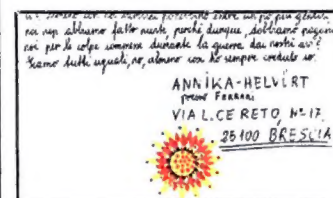 noi non abbiamo fatto niente, perché dunque, dobbiamo pagare
noi per le colpe commesse durante la guerra dai nostri avi?
Siamo tutti uguali, no, almeno così ho sempre creduto io.
ANNIKA-HELVÍRT
presso FERRARI
VIA L. CERETO, Nº 17
25100 BRESCIA